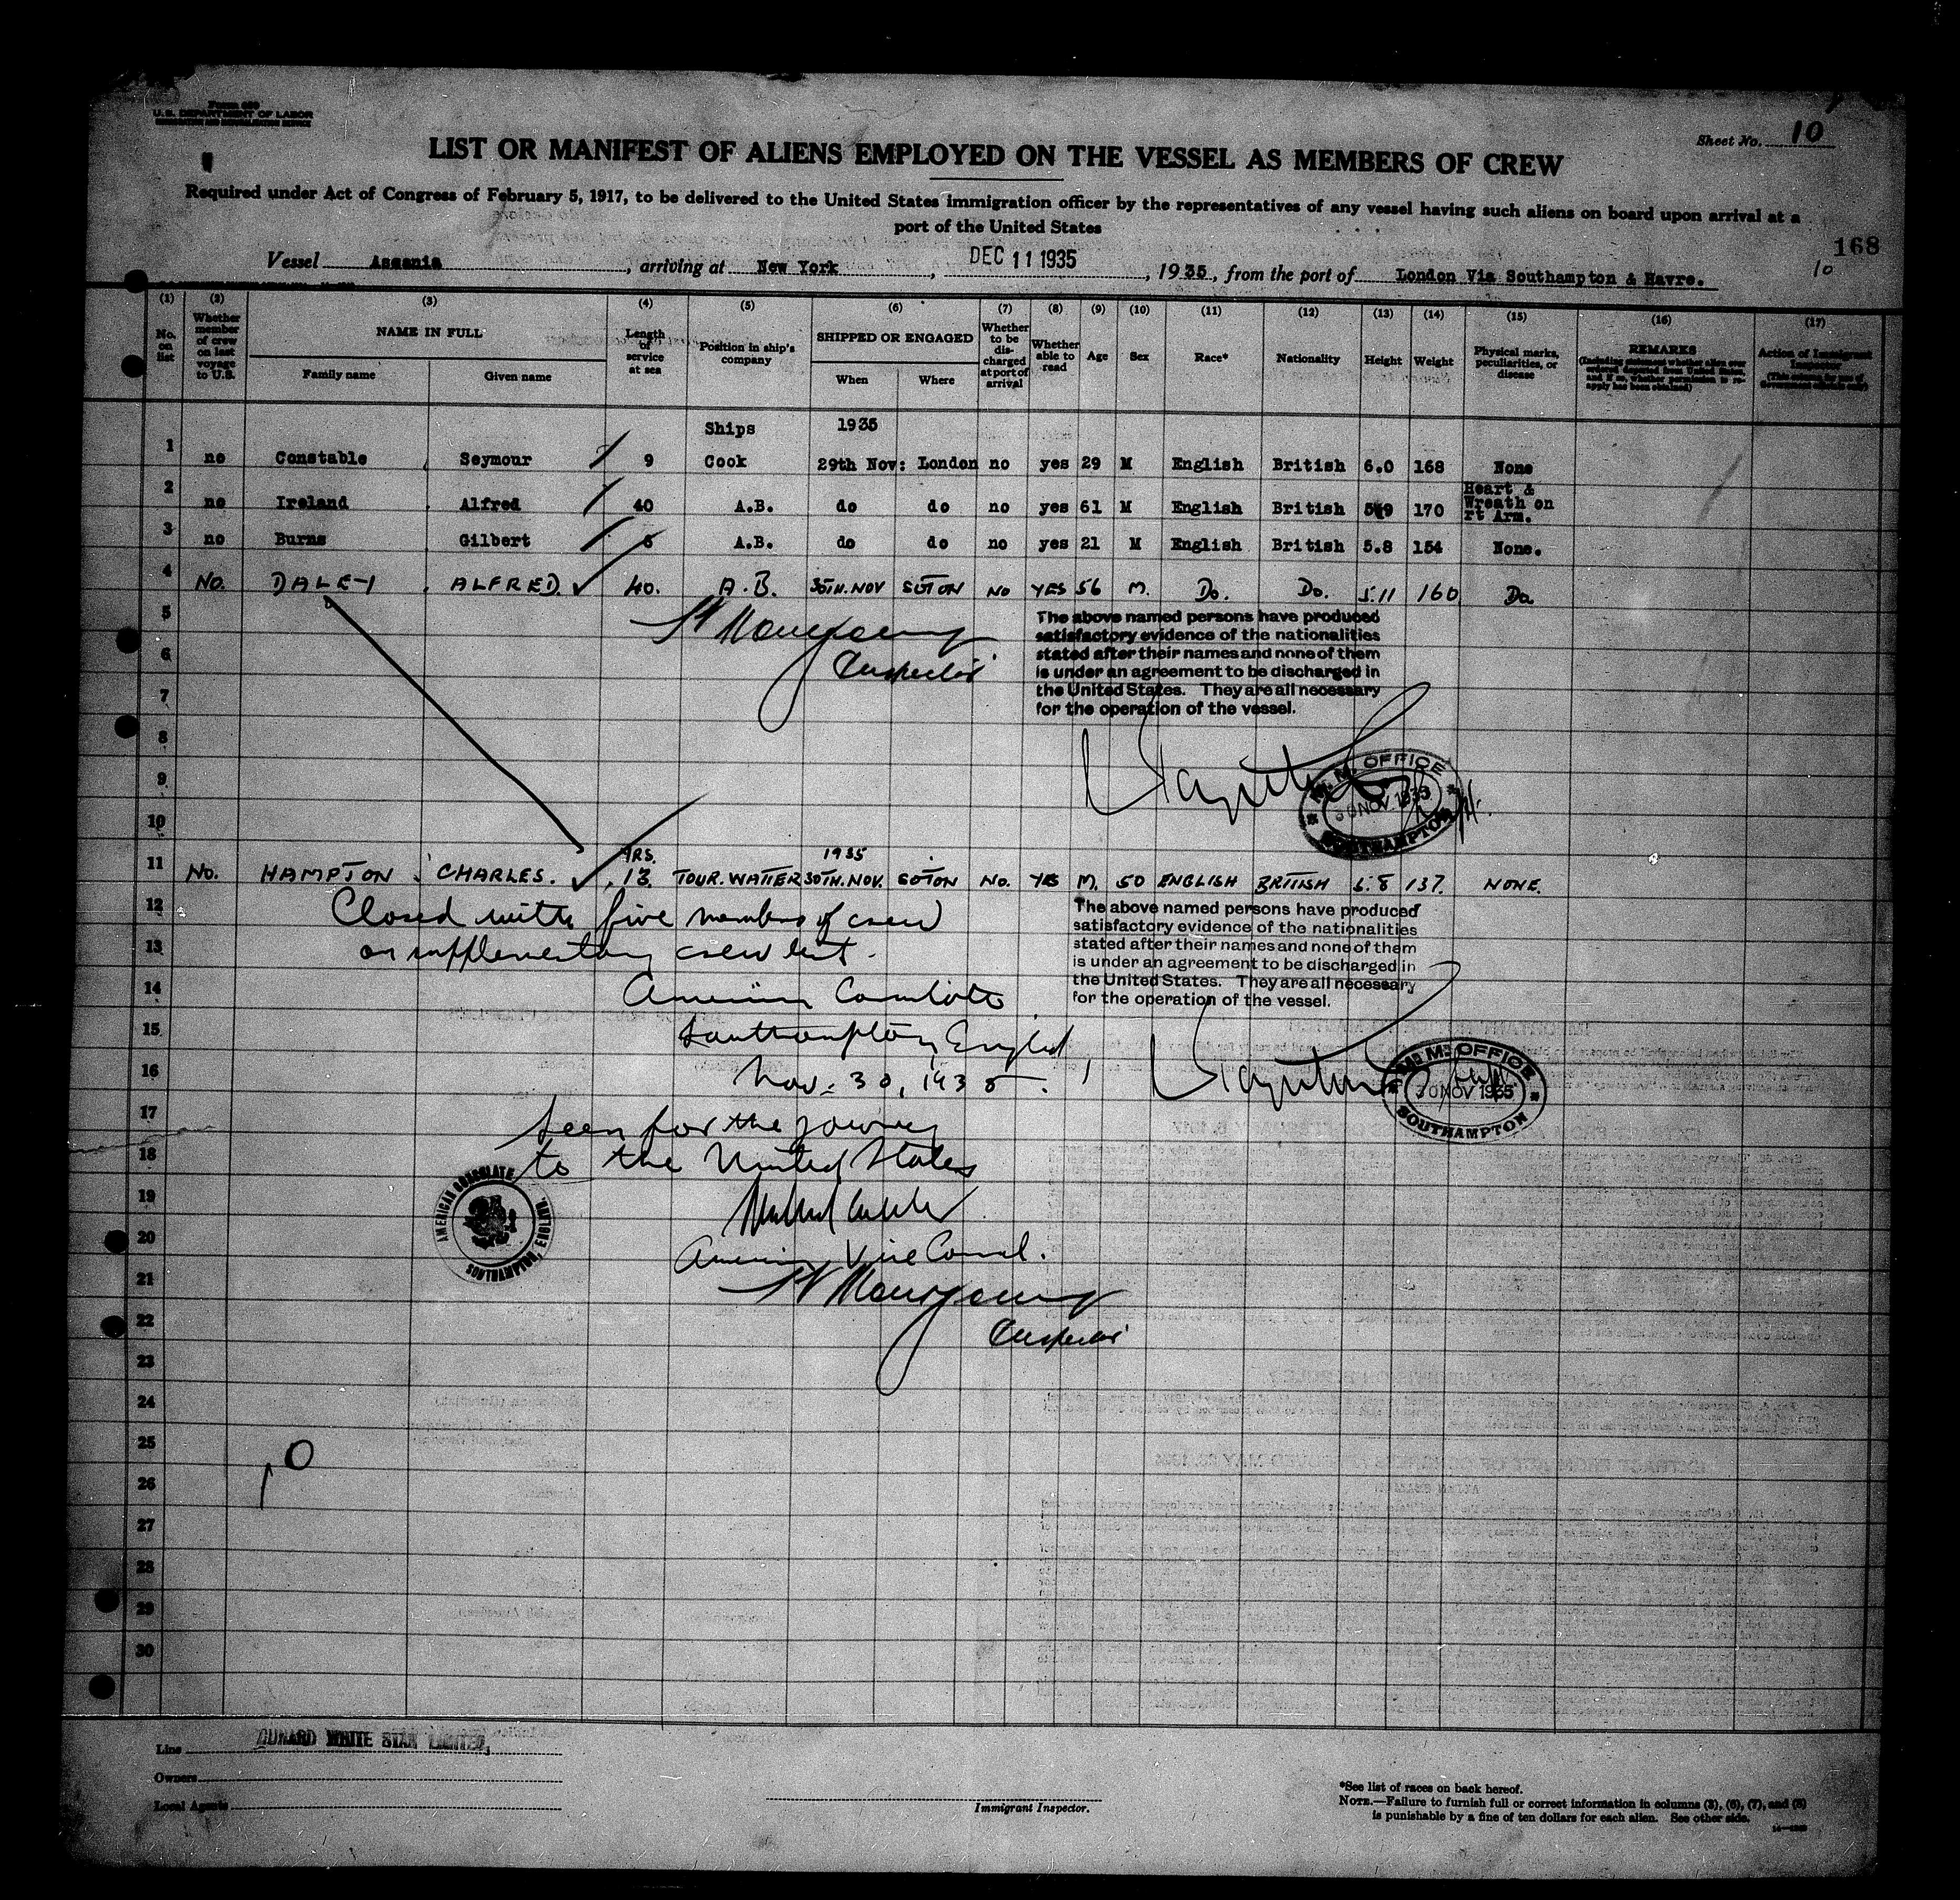 Form 680
U.S. DEPARTMENT OF LABOR
IMMIGRATION AND NATURALIZATION SERVICE
Sheet No. 10
LIST OR MANIFEST OF ALIENS EMPLOYED ON THE VESSEL AS MEMBERS OF CREW
Required under Act of Congress of February 5, 1917, to be delivered to the United States immigration officer by the representatives of any vessel having such aliens on board upon arrival at a
port of the United States
168
10
Vessel Ascania, arriving at New York, DEC 11 1935, 1935, from the port of London Via Southampton & Havre.
(1) (2) (3) (4) (5) (6) (7) (8) (9) (10) (11) (12) (13) (14) (15) (16) (17)
No. on list Whether member of crew on last voyage to U.S. NAME IN FULL Family name Given name Length of service at sea Position in ship's company SHIPPED OR ENGAGED When Where Whether to be discharged at port of arrival Whether able to read Age Sex Race* Nationality Height Weight Physical marks, peculiarities, or disease REMARKS Action of Immigrant Inspector
Ships 1935
1 no Constable Seymour 9 Cook 29th Nov: London no yes 29 M English British 6.0 168 None
2 no Ireland Alfred 40 A.B. do do no yes 61 M English British 5.9 170 Heart & Wreath on rt Arm.
3 no Burns Gilbert 6 A.B. do do no yes 21 M English British 5.8 154 None.
4 No. DALEY ALFRED. 40. A.B. 30TH. NOV SOTON No YES 56 M. Do. Do. 5.11 160 Do.
5
6
7
8
9
10
Inspector
The above named persons have produced
satisfactory evidence of the nationalities
stated after their names and none of them
is under an agreement to be discharged in
the United States. They are all necessary
for the operation of the vessel.
M. M. OFFICE
30 NOV 1935
SOUTHAMPTON
YRS. 1935
11 No. HAMPTON CHARLES. 13. TOUR. WAITER 30TH. NOV. SOTON No. YES M. 50 ENGLISH BRITISH 5.8 137. NONE.
12 Closed with five members of crew
13 on supplementary crew list.
14 American Consulate
15 Southampton, England,
16 Nov. 30, 1935.
17 Seen for the journey
18 to the United States
19
20 American Vice Consul.
21
22 Inspector
23
24
25
26
27
28
29
30
The above named persons have produced
satisfactory evidence of the nationalities
stated after their names and none of them
is under an agreement to be discharged in
the United States. They are all necessary
for the operation of the vessel.
M. M. OFFICE
30 NOV 1935
SOUTHAMPTON
AMERICAN CONSULATE
SOUTHAMPTON, ENGLAND
10
Line CUNARD WHITE STAR LIMITED,
Owners
Local Agents
Immigrant Inspector.
*See list of races on back hereof.
NOTE.—Failure to furnish full or correct information in columns (3), (6), (7), and (8)
is punishable by a fine of ten dollars for each alien. See other side.